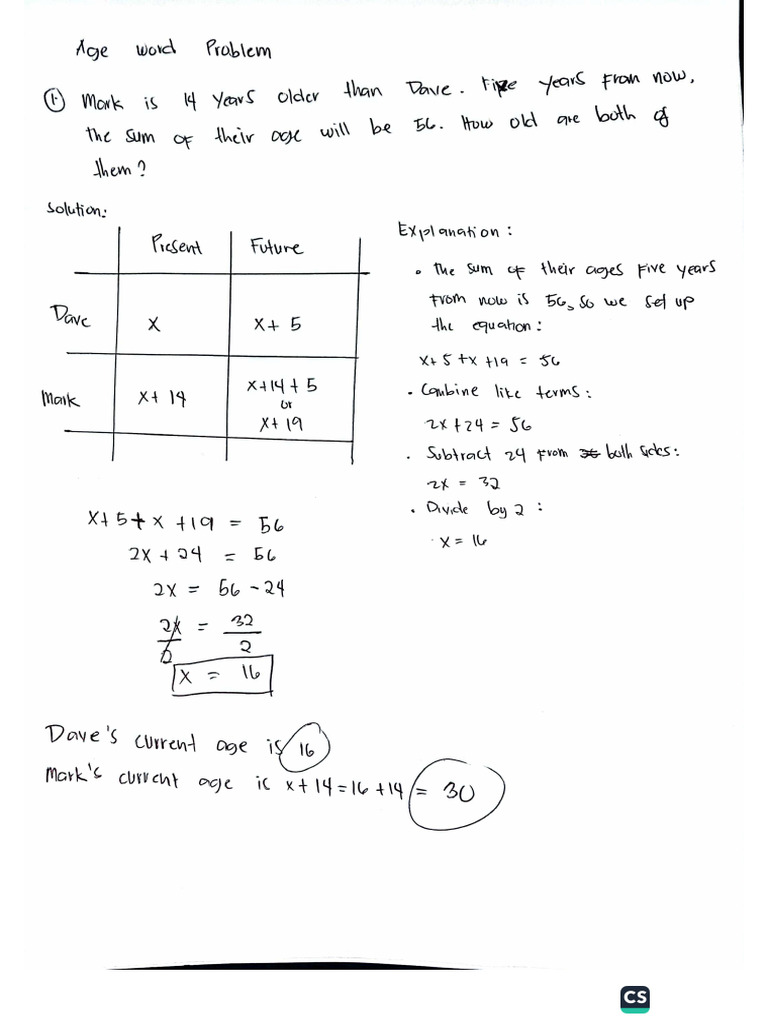 Age word Problem
① Mark is 14 years older than Dave. Five years from now,
the sum of their age will be 56. How old are both of
them?
Solution:
Present Future
Dave x x + 5
Mark x + 14 x+14+5
or
x+19
x+5+x+19 = 56
2x + 24 = 56
2x = 56 - 24
2x/2 = 32/2
x = 16
Explanation:
• the sum of their ages five years
from now is 56, so we set up
the equation:
x+5+x+19 = 56
• Combine like terms:
2x+24 = 56
• Subtract 24 from both sides:
2x = 32
• Divide by 2:
x = 16
Dave's current age is 16
Mark's current age is x+14=16+14= 30
CS